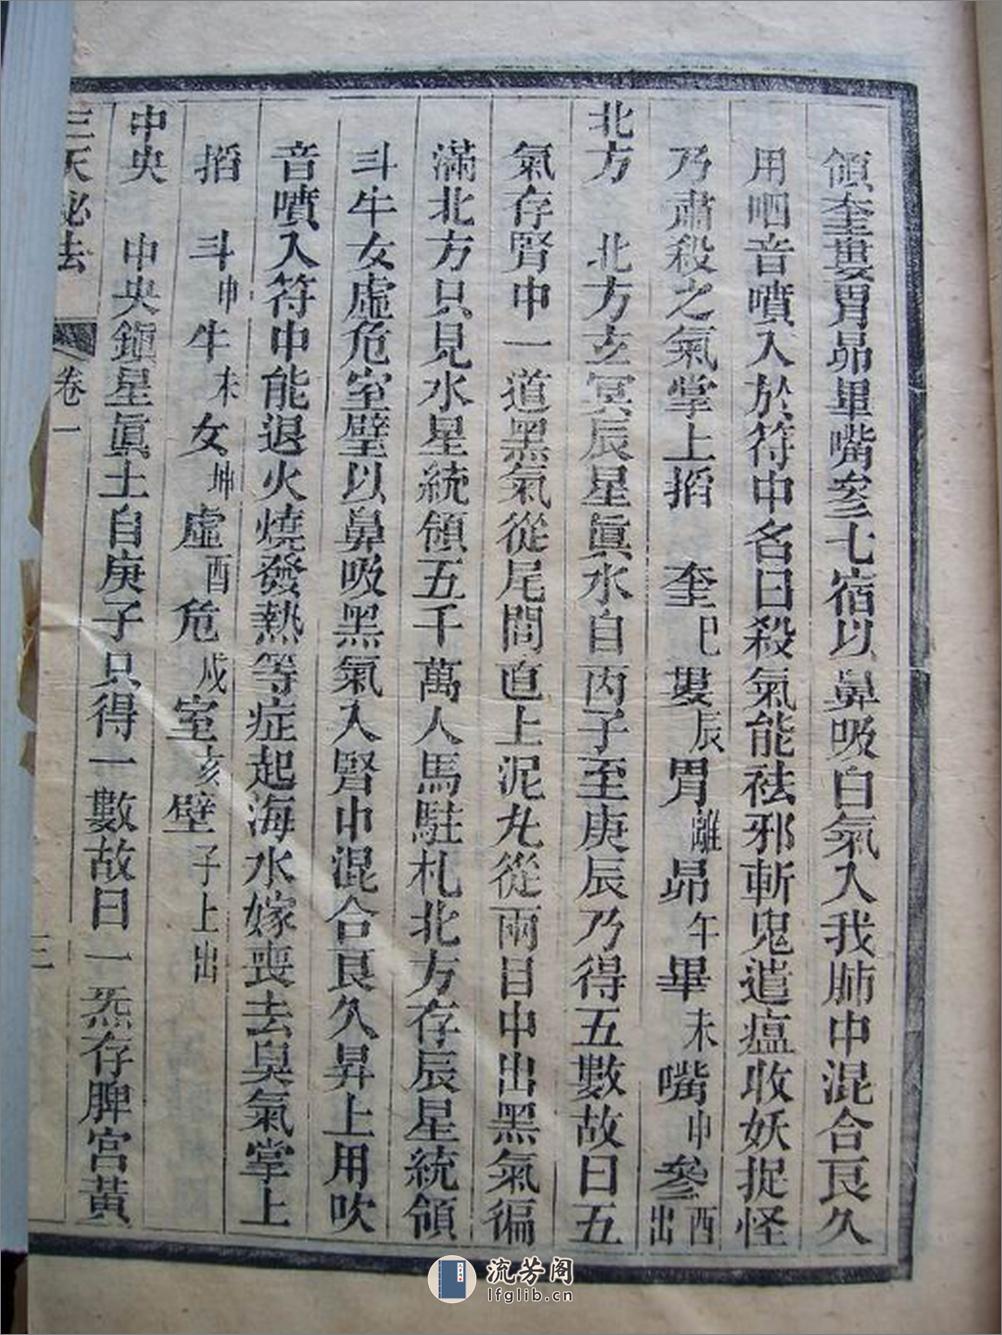 領奎婁胃昴畢嘴參七宿以鼻吸白氣入我肺中混合良久
用呬音噴入於符中名曰殺氣能祛邪斬鬼遣瘟收妖捉怪
乃肅殺之氣掌上搯 奎巳婁辰胃離昴午畢未嘴申參酉出
北方 北方玄冥辰星眞水自丙子至庚辰乃得五數故曰五
氣存腎中一道黑氣從尾閭直上泥丸從兩目中出黑氣徧
滿北方只見水星統領五千萬人馬駐札北方存辰星統領
斗牛女虛危室壁以鼻吸黑氣入腎中混合良久昇上用吹
音噴入符中能退火燒發熱等症起海水嫁喪去臭氣掌上
搯 斗申牛未女坤虛酉危戌室亥壁子上出
中央 中央鎮星眞土自庚子只得一數故曰一炁存脾宮黃
三天祕法 卷一 三
流芳阁
lfglib.cn